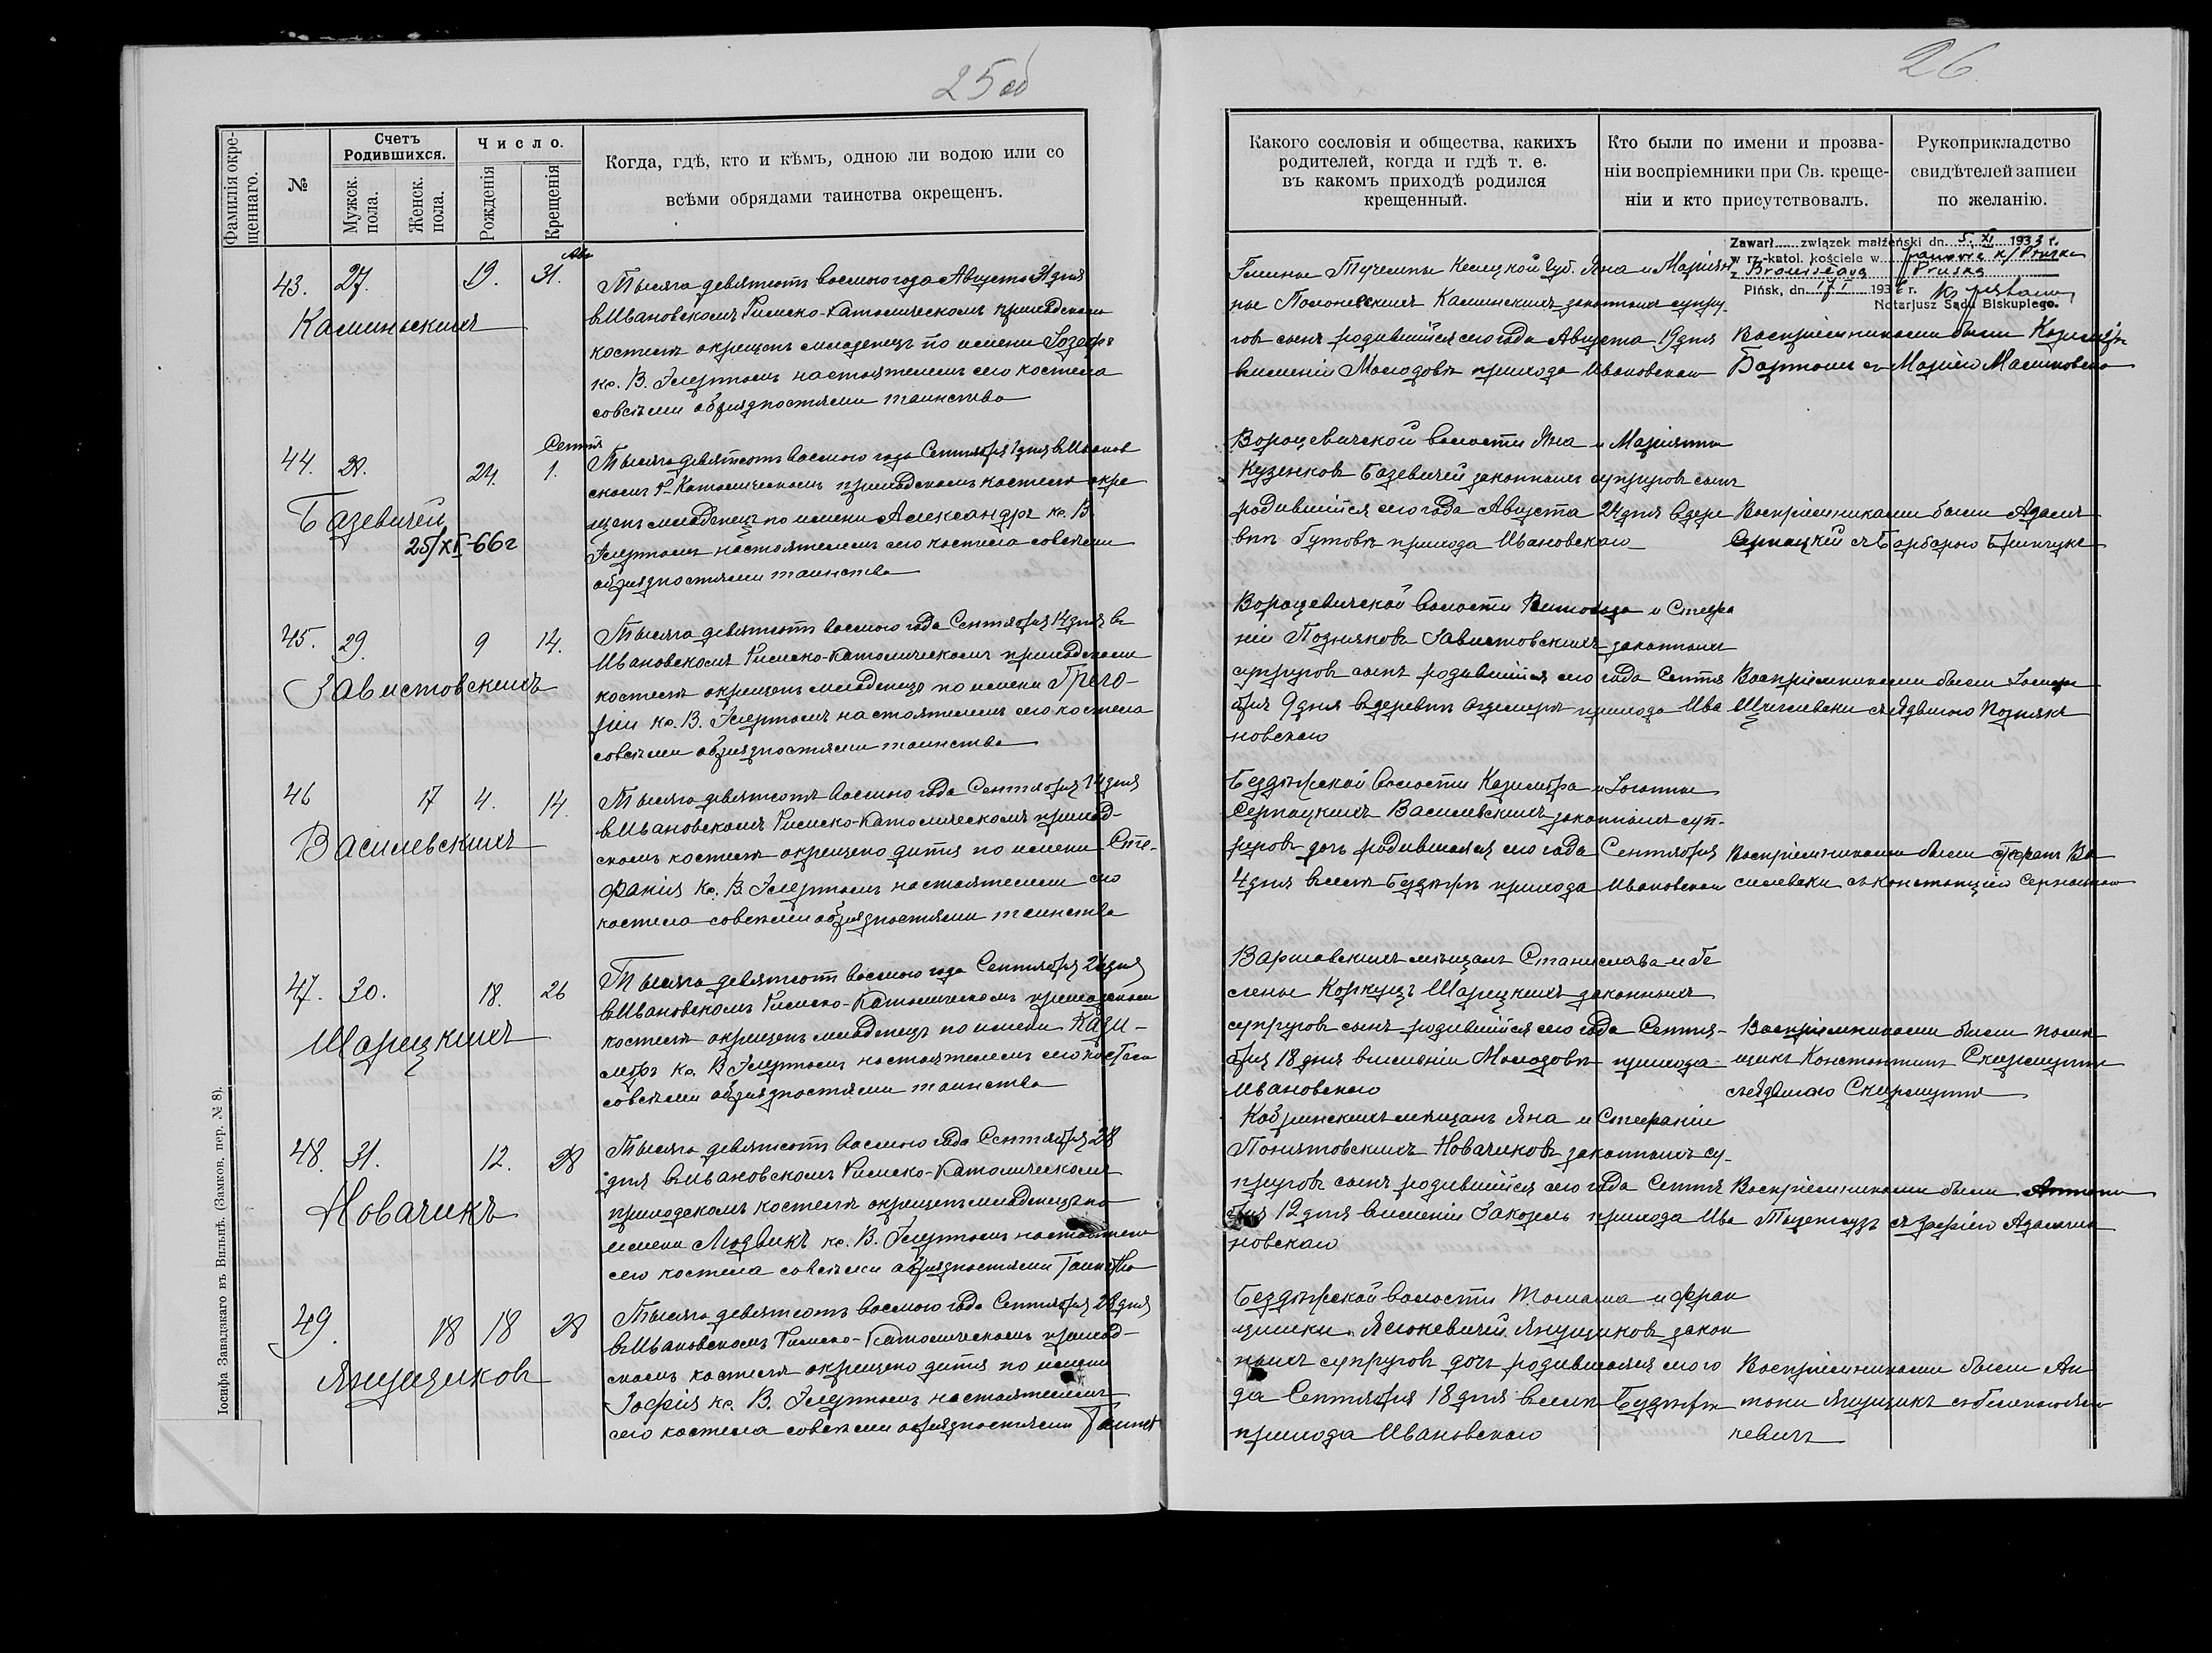 25 об
Фамилія окре-
щеннаго.
№
Счетъ
Родившихся.
Мужск.
пола.
Женск.
пола.
Число.
Рожденія
Крещенія
Когда, гдѣ, кто и кѣмъ, одною ли водою или со
всѣми обрядами таинства окрещенъ.
43. 27. 19. 31.
Каминьскихъ
Тысяча девятсотъ восьмого года Августа 31 дня
въ Ивановскомъ Римско-Католическомъ приходскомъ
костелѣ окрещенъ младенецъ по имени Іозефъ
кс. В. настоятелемъ сего костела
со всѣми обрядностями таинства
44. 28. 24. Сентя 1.
Базевичей
25/XI-66г
Тысяча девятсотъ восьмого года Сентября 1 дня въ Иванов
скомъ Р-Католическомъ приходскомъ костелѣ окре
щенъ младенецъ по имени Александръ кс. В.
настоятелемъ сего костела со всѣми
обрядностями таинства
45. 29. 9 14.
Завистовскихъ
Тысяча девятсотъ восьмого года Сентября 14 дня въ
Ивановскомъ Римско-Католическомъ приходскомъ
костелѣ окрещенъ младенецъ по имени Грего-
рій кс. В. настоятелемъ сего костела
со всѣми обрядностями таинства
46 17 4. 14.
Василевскихъ
Тысяча девятсотъ восьмого года Сентября 14 дня
въ Ивановскомъ Римско-Католическомъ приход-
скомъ костелѣ окрещено дитя по имени Сте-
фанія кс. В. настоятелемъ сего
костела со всѣми обрядностями таинства
47. 30. 18. 26
Шарецкихъ
Тысяча девятсотъ восьмого года Сентября 26 дня
въ Ивановскомъ Римско-Католическомъ приходскомъ
костелѣ окрещенъ младенецъ по имени Кази-
міръ кс. В. настоятелемъ сего костела
со всѣми обрядностями таинства
48. 31. 12. 28
Новачикъ
Тысяча девятсотъ восьмого года Сентября 28
дня въ Ивановскомъ Римско-Католическомъ
приходскомъ костелѣ окрещенъ младенецъ по
имени Людвикъ кс. В. настоятелемъ
сего костела со всѣми обрядностями Таинства
49. 18 18 28
Янущиковъ
Тысяча девятсотъ восьмого года Сентября 28 дня
въ Ивановскомъ Римско-Католическомъ приход-
скомъ костелѣ окрещено дитя по имени
Зофія кс. В. настоятелемъ
сего костела со всѣми обрядностями Таинст
Іосифа Завадзкаго въ Вильнѣ. (Замков. пер. № 8).
26
Какого сословія и общества, какихъ
родителей, когда и гдѣ т. е.
въ какомъ приходѣ родился
крещенный.
Кто были по имени и прозва-
ніи воспріемники при Св. креще-
ніи и кто присутствовалъ.
Рукоприкладство
свидѣтелей записи
по желанію.
Zawarł...... związek małżeński dn. 5. XI 1933 r.
w rz.-katol. kościele w Janowie k/Pińska
z Bronisława Pruska
Pińsk, dn. 17/I 1934 r.
Notarjusz Sądu Biskupiego.
Гмины Кѣлецкой губ. Яна и Маріян
ны Каминскихъ законныхъ супру-
говъ сынъ родившійся сего года Августа 19 дня
въ имѣніи Молодовѣ прихода Ивановскаго
Воспріемниками были Казиміръ
съ Маріею Малиновско
Вороцевичской волости Яна и Маріянны
Кузенковъ Базевичей законныхъ супруговъ сынъ
родившійся сего года Августа 24 дня въ дере
внѣ Гутовѣ прихода Ивановскаго
Воспріемниками были Адамъ
Серпацкій съ Барбарою
Вороцевичской волости Витольда и Стефа
ніи Позняковъ Завистовскихъ законныхъ
супруговъ сынъ родившійся сего года Сентя
бря 9 дня въ деревнѣ прихода Ива
новскаго
Воспріемниками были
съ Ядвигою Познякъ
Бездѣжской волости Казиміра и
Серпацкихъ Василевскихъ законныхъ суп-
руговъ дочь родившаяся сего года Сентября
4 дня въ селѣ Бездѣжѣ прихода Ивановскаго
Воспріемниками были Ва
силевски съ Констанціею
Варшавскихъ мѣщанъ Станислава и Ге
лены Коркуцъ Шарецкихъ законныхъ
супруговъ сынъ родившійся сего года Сентя-
бря 18 дня въ имѣніи Молодовѣ прихода
Ивановскаго
Воспріемниками были помѣ
щикъ Константинъ Скирмунтъ
съ Ядвигою Скирмунтъ
Кобринскихъ мѣщанъ Яна и Стефаніи
Понятовскихъ Новачиковъ законныхъ су-
пруговъ сынъ родившійся сего года Сентя
бря 12 дня въ имѣніи Закозель прихода Ива
новскаго
Воспріемниками были Антони
съ Зофіею
Бездѣжской волости Томаша и Фран
цишки Янущиковъ закон
ныхъ супруговъ дочь родившаяся сего го
да Сентября 18 дня въ селѣ Бездѣжѣ
прихода Ивановскаго
Воспріемниками были Ан
тони Янущикъ съ Геленою
кевичъ